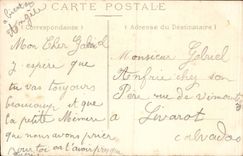 CARTE POSTALE
Correspondance
Adresse du Destinataire
à bientôt
Mon Cher Gabriel
J espere que
tu vas toyours
beaucoup et que
la petite
que nous avons prier
pour toi
Monsieur Gabriel
Anfrie chez son
Père rue de
Livarot
Calvados